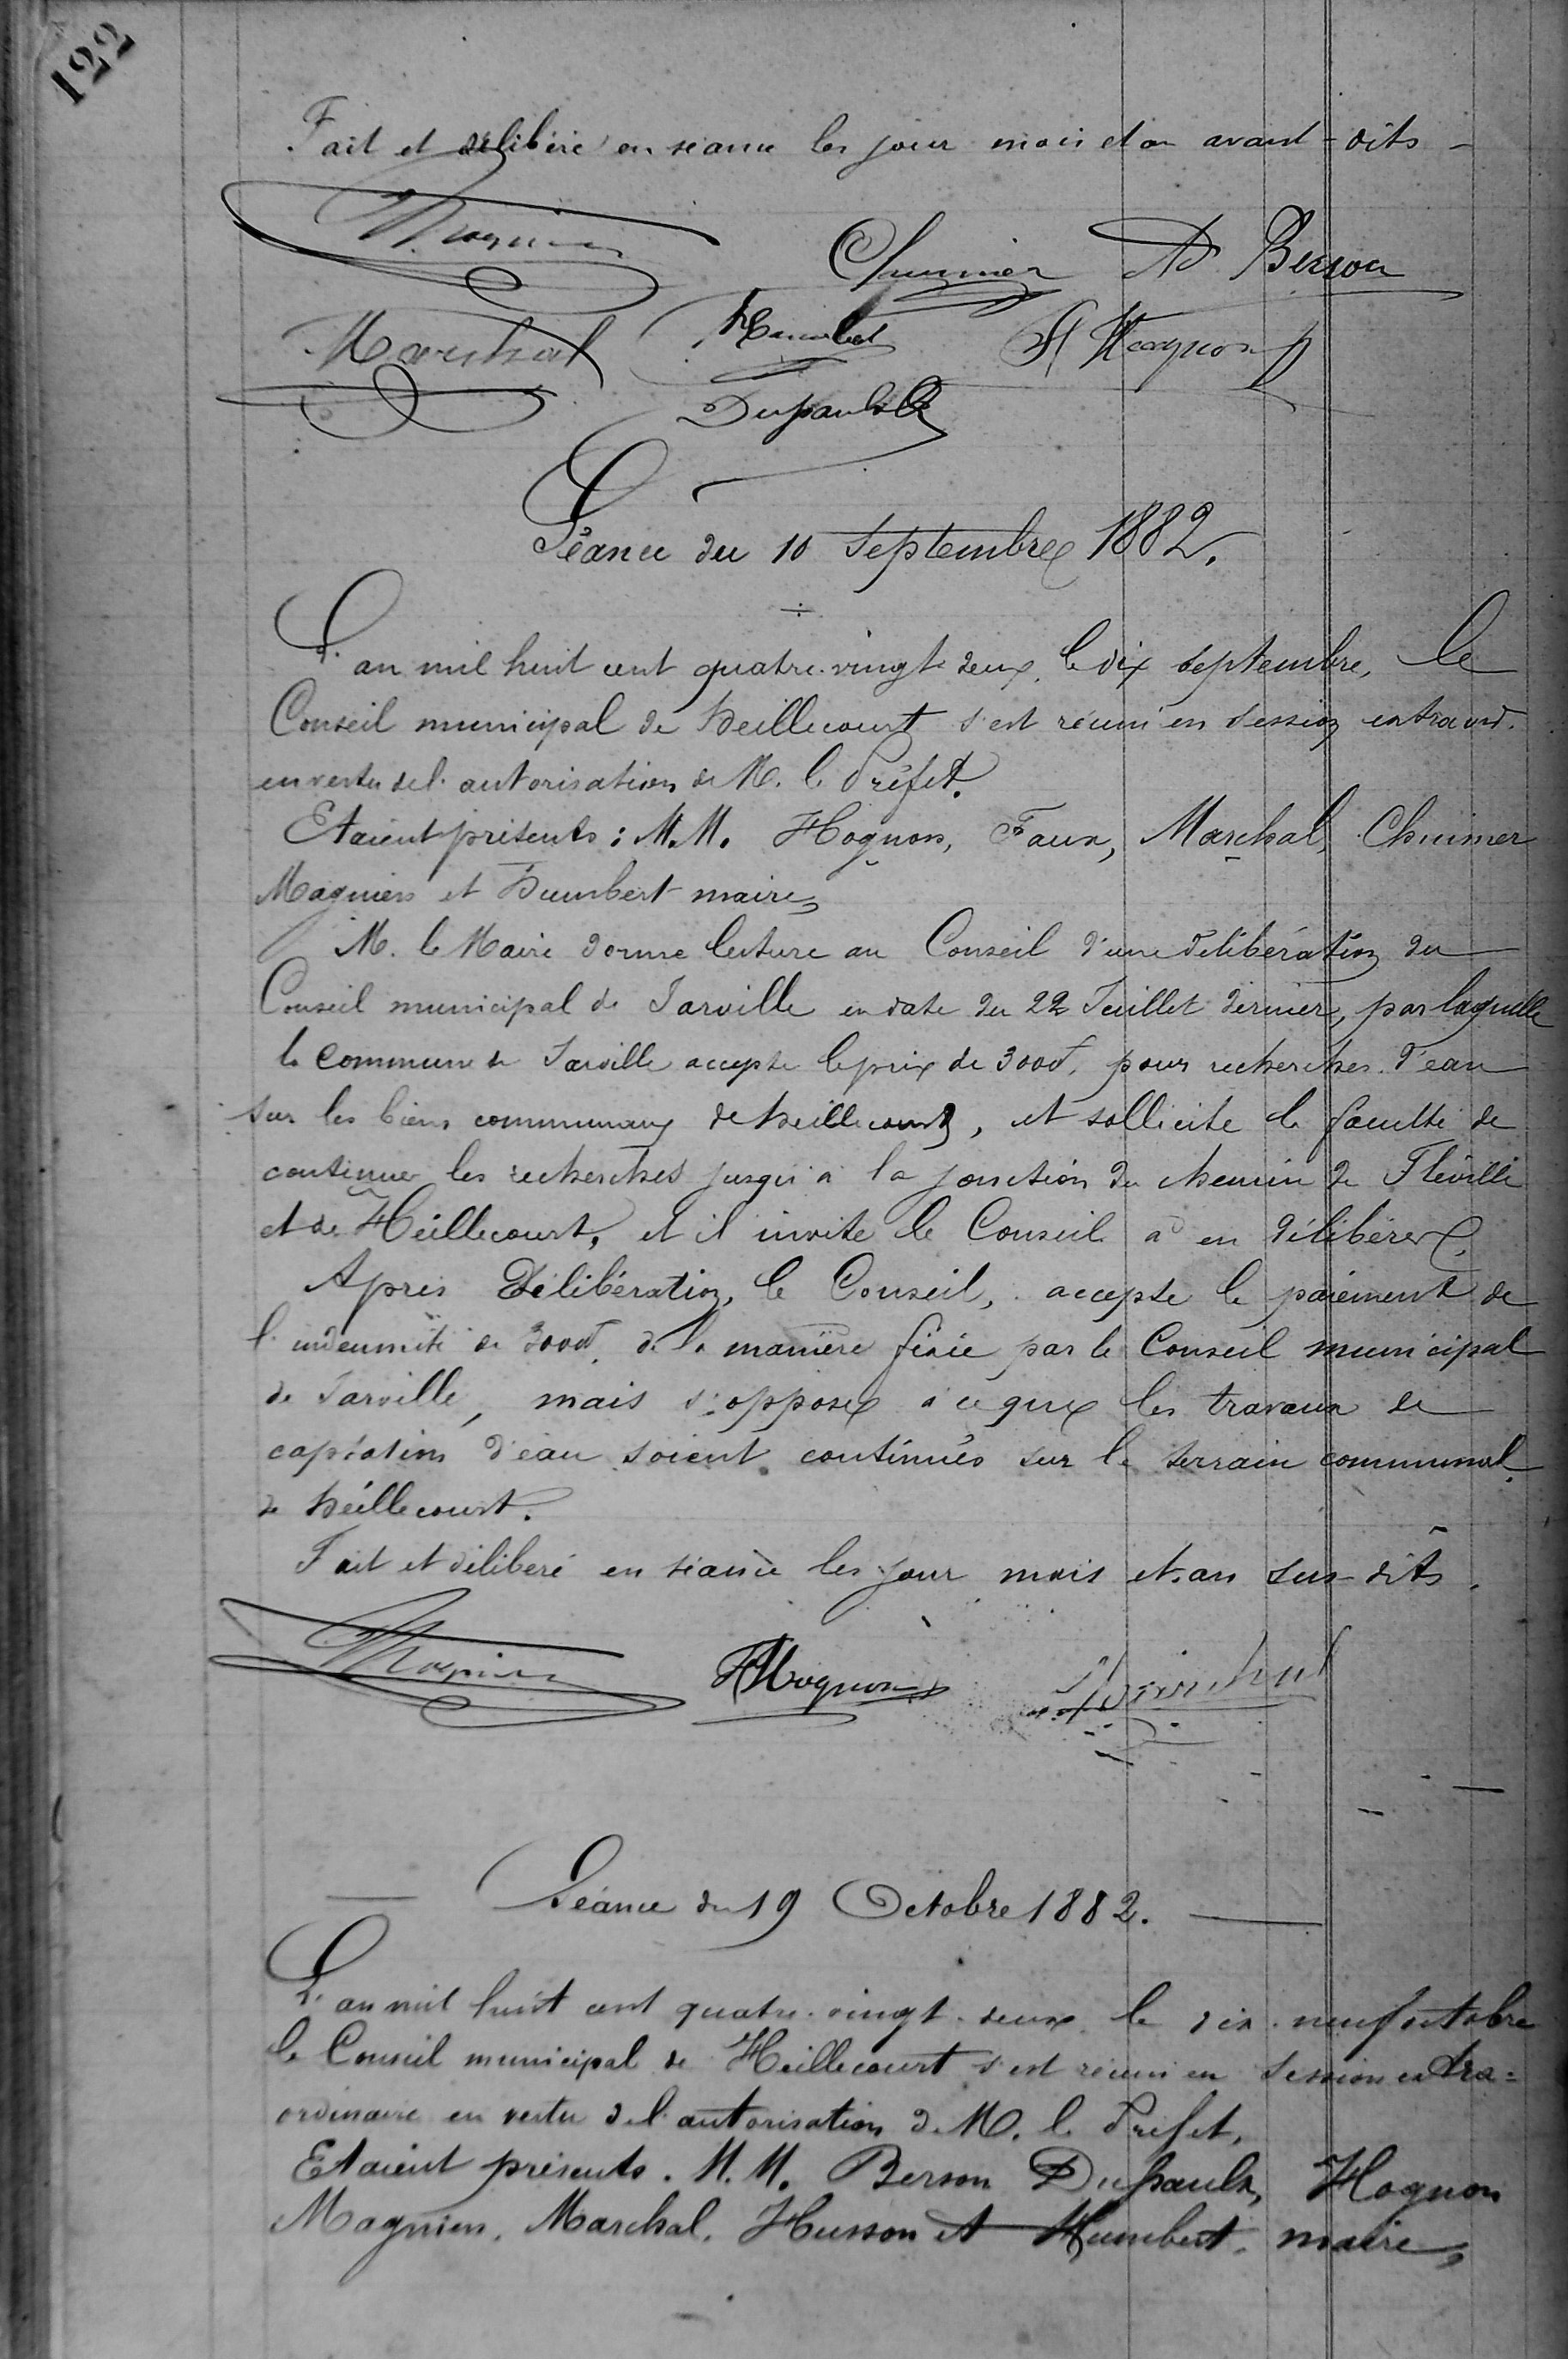 122
Fait et délibéré en séance les jour mois et an avant-dits -
Magnien
Chuimer AD Berson
Marchal Humbert H Hognon
Dupaulx
Séance du 10 Septembre 1882.
L'an mil huit cent quatre-vingt deux, le dix septembre, le
Conseil municipal de heillecourt s'est réuni en session extraord.
en vertu de l'autorisation de M. le Préfet.
Etaient présents : M.M. Hognon, Faux, Marchal, Chuimer
Magnien et humbert maire,
M. le Maire donne lecture au Conseil d'une délibération du
Conseil municipal de Jarville en date du 22 Juillet dernier, par laquelle
la commune de Jarville accepte le prix de 300f, pour recherches d'eau
sur les biens communaux de heillecourt, et sollicite la faculté de
continuer les recherches jusqu'à la jonction du chemin de Fléville
et de Heillecourt, et il invite le Conseil à en délibérer.
Après Délibération, le Conseil, accepte le paiement de
l'indemnité de 300f, de la manière fixée par le Conseil municipal
de Jarville, mais s'oppose à ce que les travaux de
captation d'eau soient continués sur le terrain communal
de heillecourt.
Fait et délibéré en séance les jour mois et an sus-dits.
Magnien H Hognon Marchal
Séance du 19 Octobre 1882.
L'an mil huit cent quatre-vingt-deux le dix-neuf octobre
le Conseil municipal de Heillecourt s'est réuni en session extra=
ordinaire en vertu de l'autorisation de M. le Préfet,
Etaient présents. M.M. Berson Dupaulx, Hognon
Magnien, Marchal, Husson et Humbert, maire,